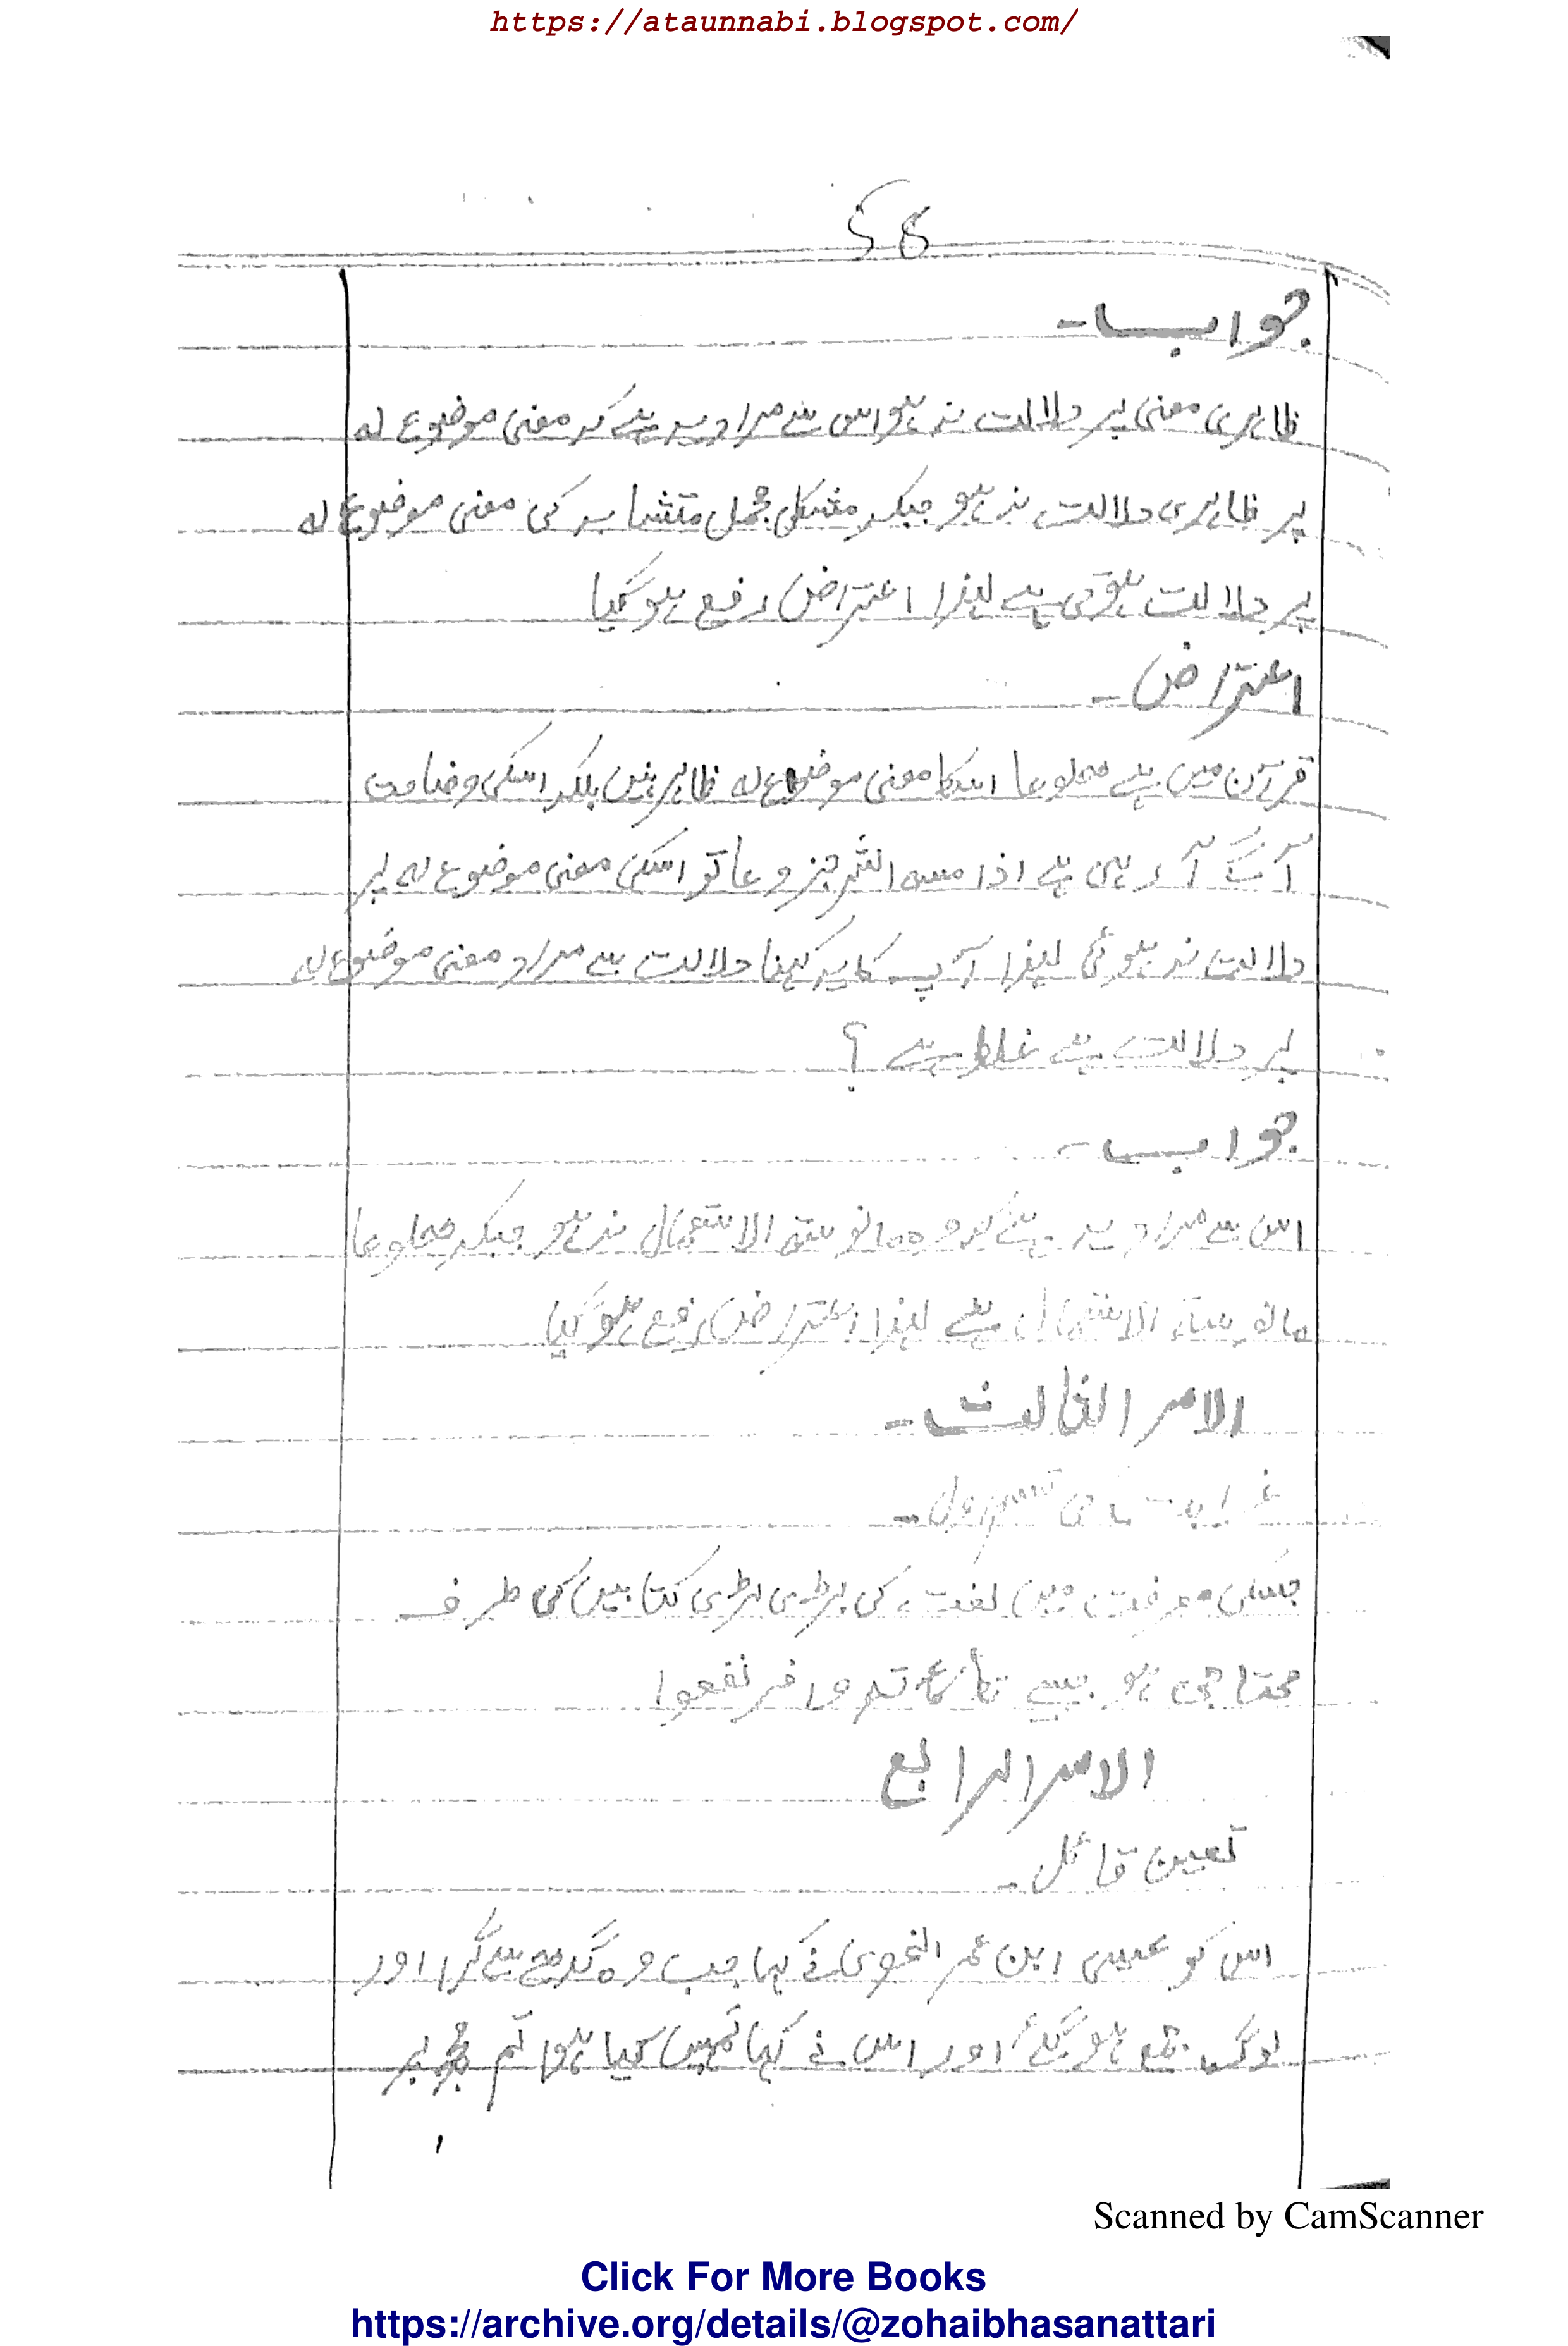 https://ataunnabi.blogspot.com/
58
جواب۔
ظاہری معنی پر دلالت نہ ہو اس سے مراد یہ ہے کہ معنی موضوع لہ
پر ظاہری دلالت نہ ہو جبکہ مشکل مجمل متشابہ کی معنی موضوع لہ
پر دلالت ہوتی ہے لہذا اعتراض رفع ہو گیا
اعتراض۔
قرآن میں ہے ھلوعا اسکا معنی موضوع لہ ظاہر نہیں بلکہ اسکی وضاحت
آگے آ رہی ہے اذا مسہ الشر جزوعا تو اسکی معنی موضوع لہ پر
دلالت نہ ہوئی لہذا آپ کا یہ کہنا دلالت سے مراد معنی موضوع لہ
پر دلالت ہے غلط ہے ؟
جواب۔
اس سے مراد یہ ہے کہ وہ مانوستہ الاستعمال نہ ہو جبکہ ھلوعا
مانوستہ الاستعمال ہے لہذا اعتراض رفع ہو گیا
الامر الثالث۔
غرابت کی قسم اول۔
جسکی معرفت میں لغت کی بڑی بڑی کتابیں کی طرف
محتاجی ہو جیسے تکأکأتم افرنقعوا
الامر الرابع
تعین قائل۔
اس کو عیسی ابن عمر النحوی نے کہا جب وہ گدھے سے گرا اور
لوگ جمع ہو گئے اور اس نے کہا تمہیں کیا ہوا تم مجھ پر
Scanned by CamScanner
Click For More Books
https://archive.org/details/@zohaibhasanattari